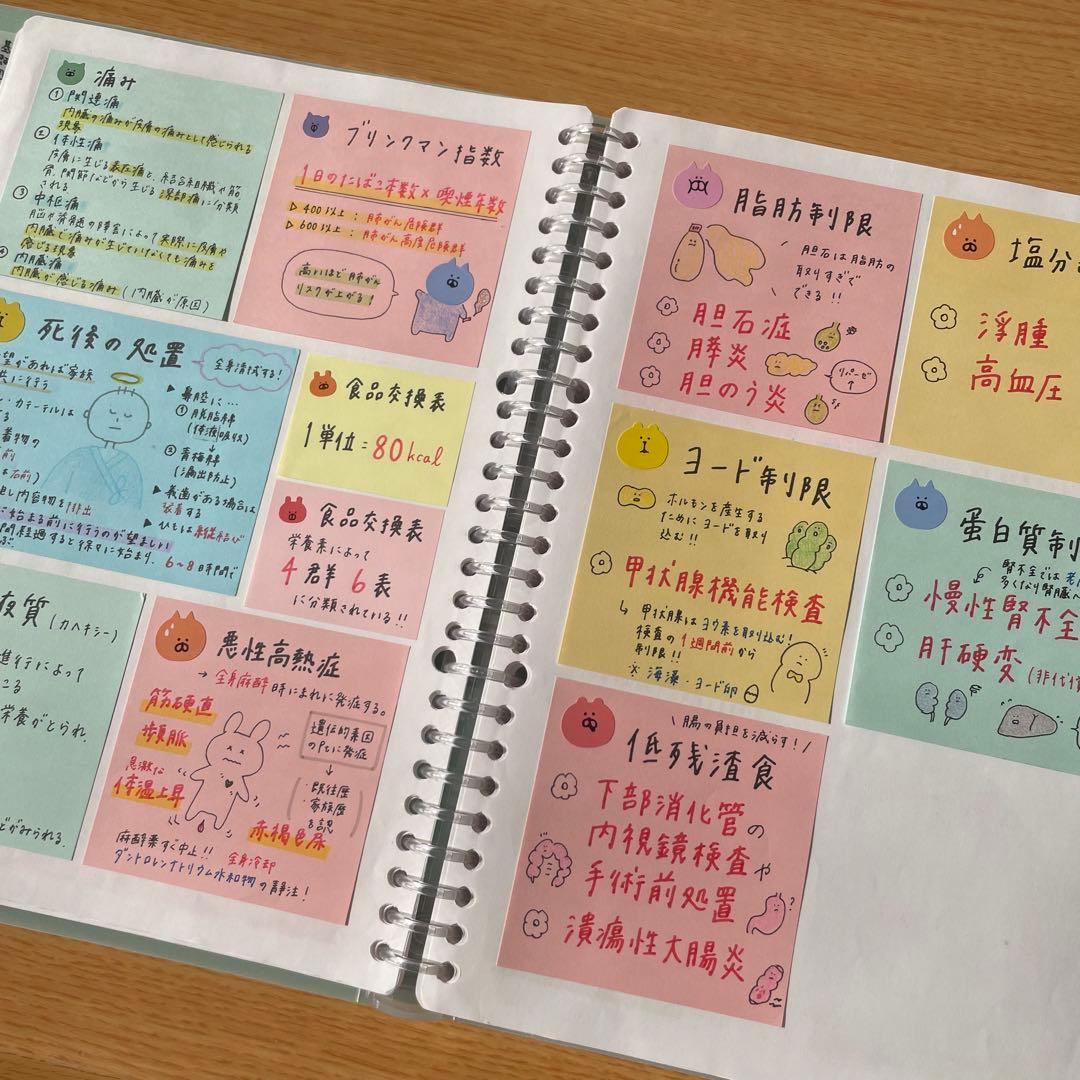 痛み
① 関連痛
内臓の痛みが皮膚の痛みとして感じられる
現象
② 体性痛
皮膚に生じる表在痛と、結合組織や筋
骨、関節などから生じる深部痛に分類
される
③ 中枢痛
脳や脊髄の障害によって実際に皮膚や
内臓で痛みが生じていなくても痛みを
感じる現象
内臓痛
内臓が感じる痛み(内臓が原因)
ブリンクマン指数
1日のたばこ本数×喫煙年数
▷ 400以上:肺がん危険群
▷ 600以上:肺がん高度危険群
高いほど肺がん
リスクが上がる!
死後の処置
全身清拭する!
望があれば家族
共に行う
・カテーテルは
る
着物の
前
▶ 鼻腔に…
① 脱脂綿
(体液吸収)
② 青梅綿
(漏出防止)
▶ 義歯がある場合は
装着する
▶ ひもは縦結び
し内容物を排出
始まる前に行うのが望ましい
間経過すると徐々に始まり、6~8時間で
食品交換表
1単位=80kcal
食品交換表
栄養素によって
4群6表
に分類されている!!
夜質(カヘキシー)
進行によって
こる
栄養がとられ
どがみられる。
悪性高熱症
→ 全身麻酔時にまれに発症する。
筋硬直
頻脈
急激な
体温上昇
遺伝的素因
のPtに発症
↓
・既往歴
・家族歴
を確認
赤褐色尿
麻酔薬すぐ中止!! 全身冷却
ダントロレンナトリウム水和物の静注!
脂肪制限
胆石は脂肪の
取りすぎで
できる!!
胆石症
膵炎
胆のう炎
リパーゼ
↑
塩分
浮腫
高血圧
ヨード制限
ホルモンを産生する
ためにヨードを取り
込む!!
甲状腺機能検査
↳ 甲状腺はヨウ素を取り込む!
検査の1週間前から
制限!!
※ 海藻・ヨード卵
蛋白質制
腎不全では老
多くなり腎臓へ
慢性腎不全
肝硬変(非代償
\ 腸の負担を減らす! /
低残渣食
下部消化管の
内視鏡検査や
手術前処置
潰瘍性大腸炎